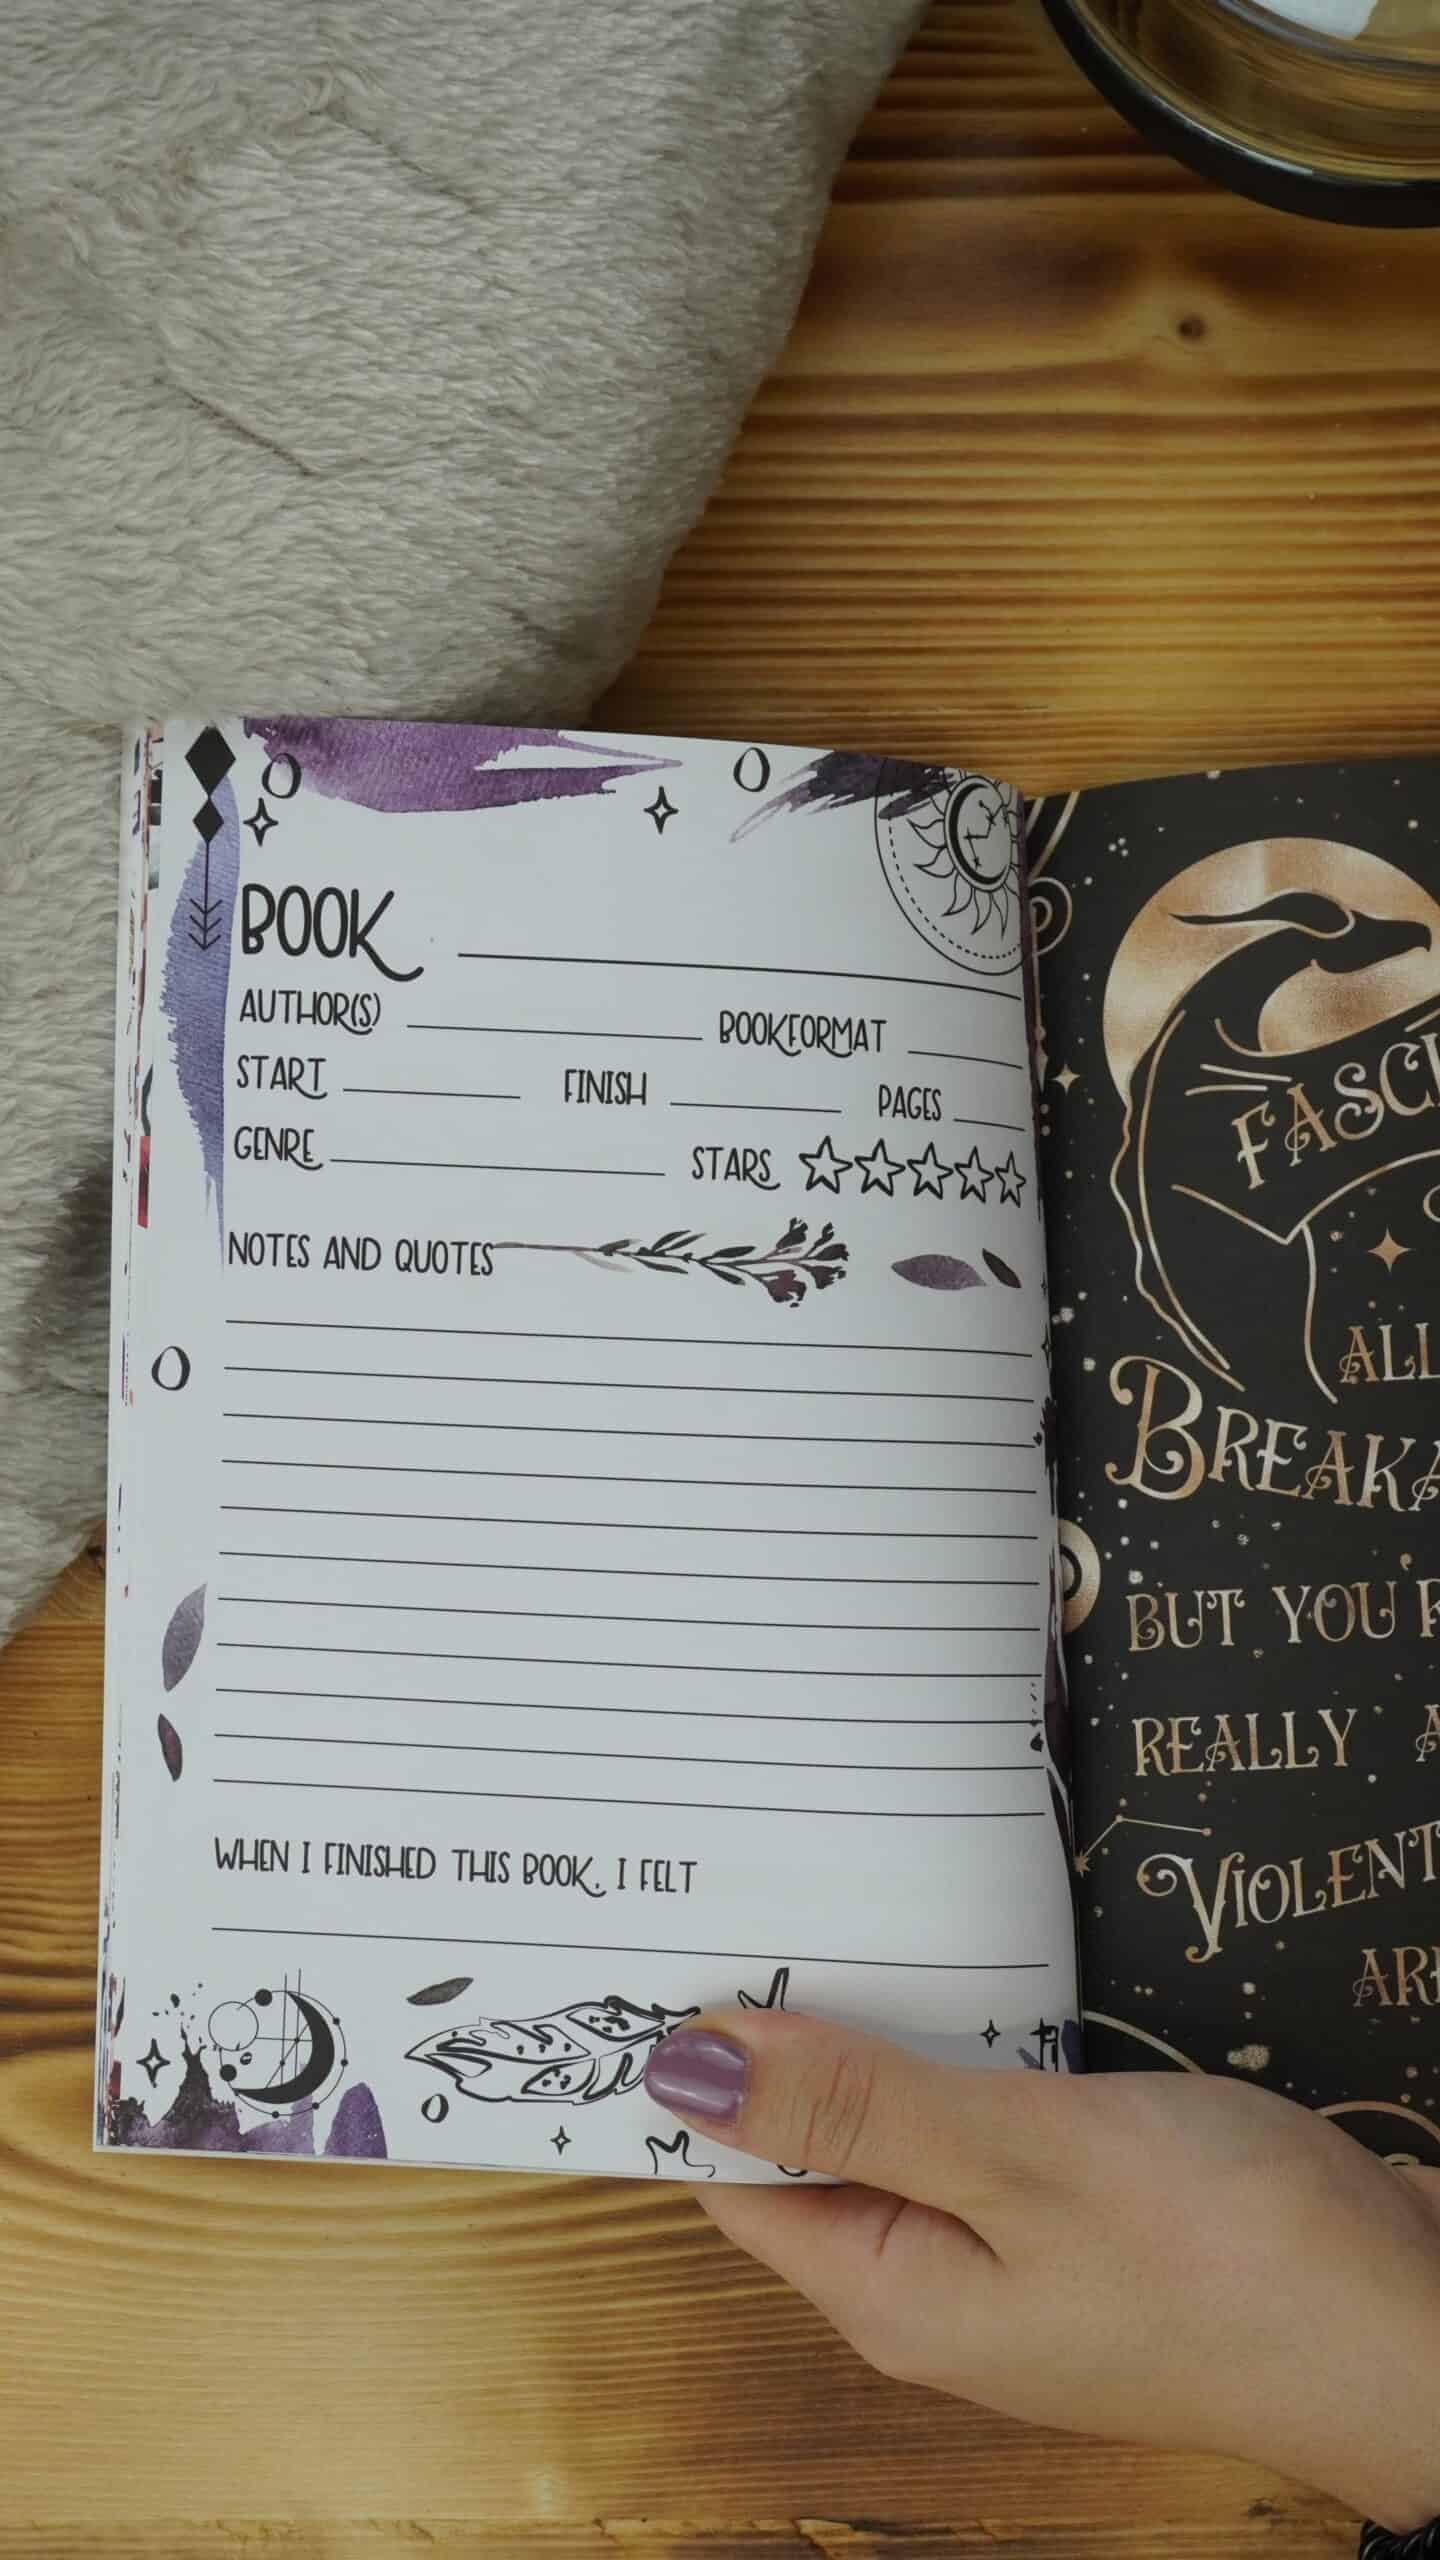 BOOK
AUTHOR(S) BOOKFORMAT
START FINISH PAGES
GENRE STARS
NOTES AND QUOTES
WHEN I FINISHED THIS BOOK, I FELT
ALL
BUT YOU'R
REALLY